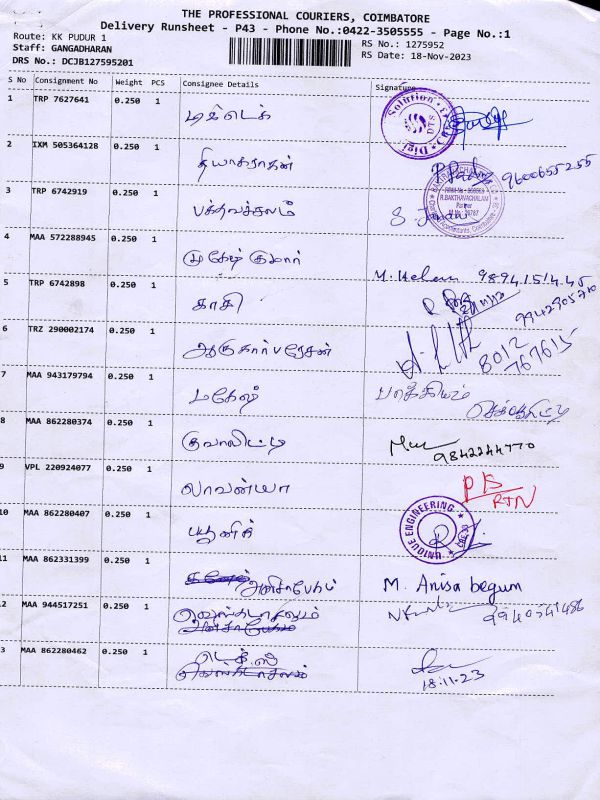 THE PROFESSIONAL COURIERS, COIMBATORE
Delivery Runsheet - P43 - Phone No.:0422-3505555 - Page No.:1
Route: KK PUDUR 1
Staff: GANGADHARAN
DRS No.: DCJB127595201
RS No.: 1275952
RS Date: 18-Nov-2023
S No Consignment No Weight PCS Consignee Details Signature
1 TRP 7627641 0.250 1
Digi Solution DTS
2 IXM 505364128 0.250 1 தியாகராகன்
9600655255
3 TRP 6742919 0.250 1 பக்தவச்சலம்
R.BAKTHAVACHALAM
Partner
4 MAA 572288945 0.250 1 முகேஷ் குமார்
9894151445
5 TRP 6742898 0.250 1 காசி
9942905710
6 TRZ 290002174 0.250 1
8012
767615
7 MAA 943179794 0.250 1 மகேஷ் பாக்கியம்
8 MAA 862280374 0.250 1 குவாலிட்டி
9842244770
9 VPL 220924077 0.250 1 லாவன்யா
RTN
10 MAA 862280407 0.250 1 யுனிக்
UNIQUE ENGINEERING
11 MAA 862331399 0.250 1 அனிசாபேகம் M. Anisa begum
12 MAA 944517251 0.250 1 வெங்கடாசலம்
9940741486
3 MAA 862280462 0.250 1
18.11.23